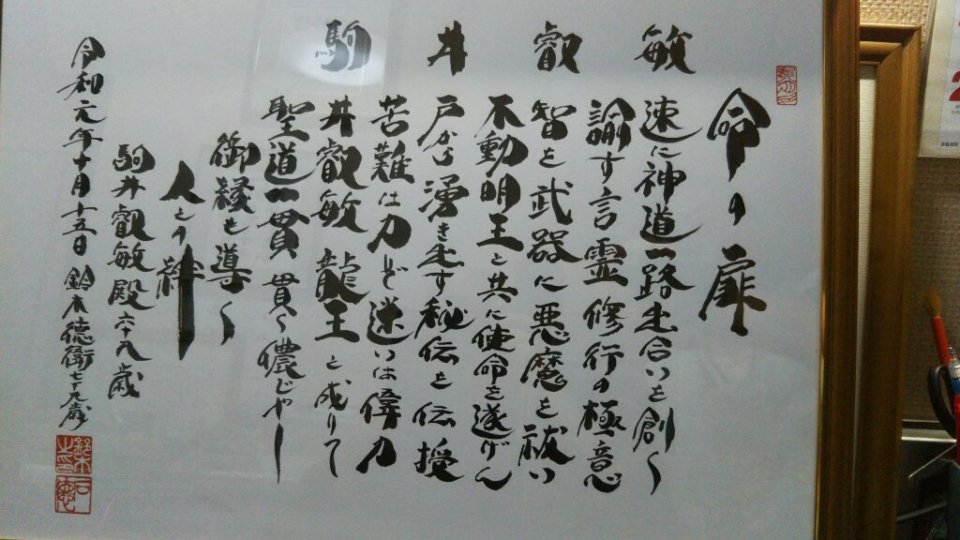 命の扉
敏速に神道一路出合いを創く
諭す言霊修行の極意
叡智を武器に悪魔を祓い
不動明王と共に使命を遂げん
井戸から湧き出す秘伝を伝授
苦難は力ど迷いは偉力
駒井叡敏 龍王と成りて
聖道一貫 貫く儂じゃー
御縁も導く
人との絆
駒井叡敏殿六十九歳
令和元年十月十五日 鈴木徳衛七十九歳